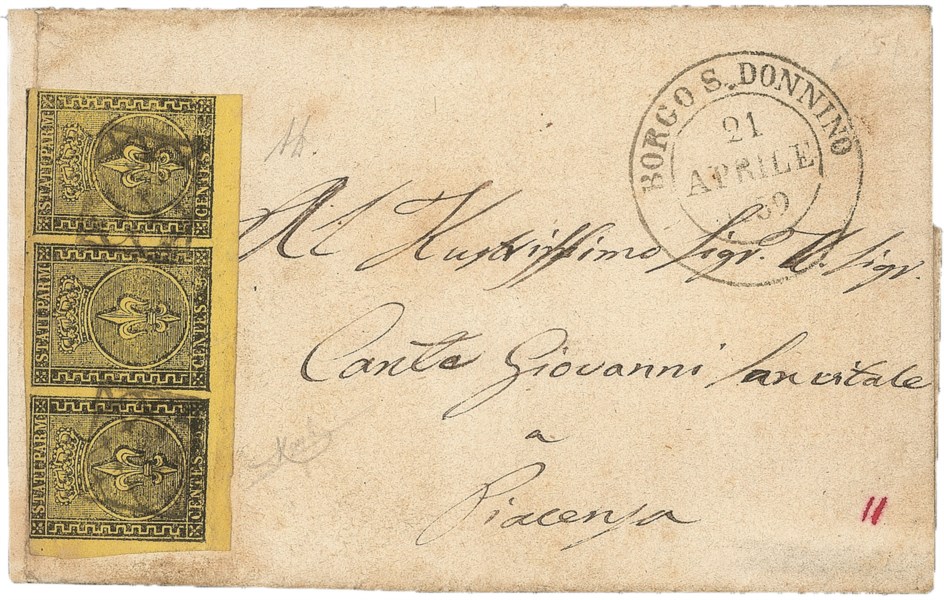 STATI PARM.
CENTES. 5
STATI PARM.
CENTES. 5
STATI PARM.
CENTES. 5
BORGO S. DONNINO
21
APRILE
Al Illustrissimo Sigr. D. Sigr.
Conte Giovanni Sanvitale
a
Piacenza
11